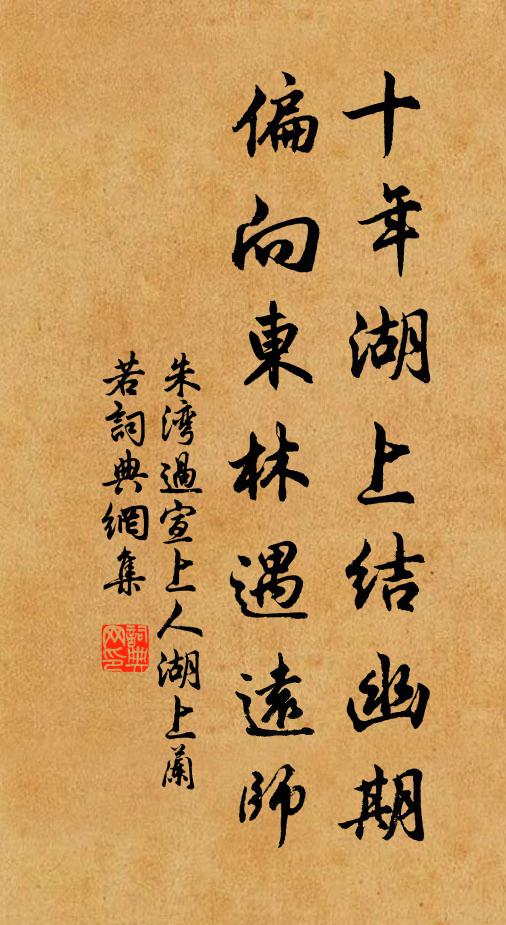 十年湖上结幽期
偏向東林遇遠師
朱湾過宣上人湖上蘭
若詞典網集
詞典网印